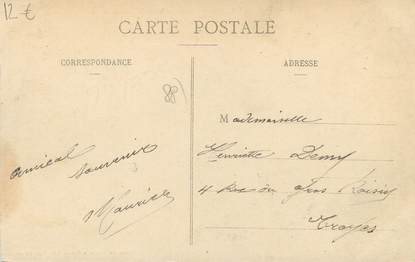 12 €
CARTE POSTALE
CORRESPONDANCE
ADRESSE
88
Mademoiselle
Henriette Demy
4 Rue du gros Raisin
Troyes
Amical
Souvenir
Maurice